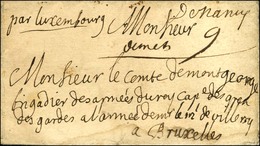 par Luxembourg Monsieur de Nancy
9
Monsieur le comte de montgeorge
brigadier des armées du roy cape des
des gardes a l'armée de mr le m de villeroy
a Bruxelles